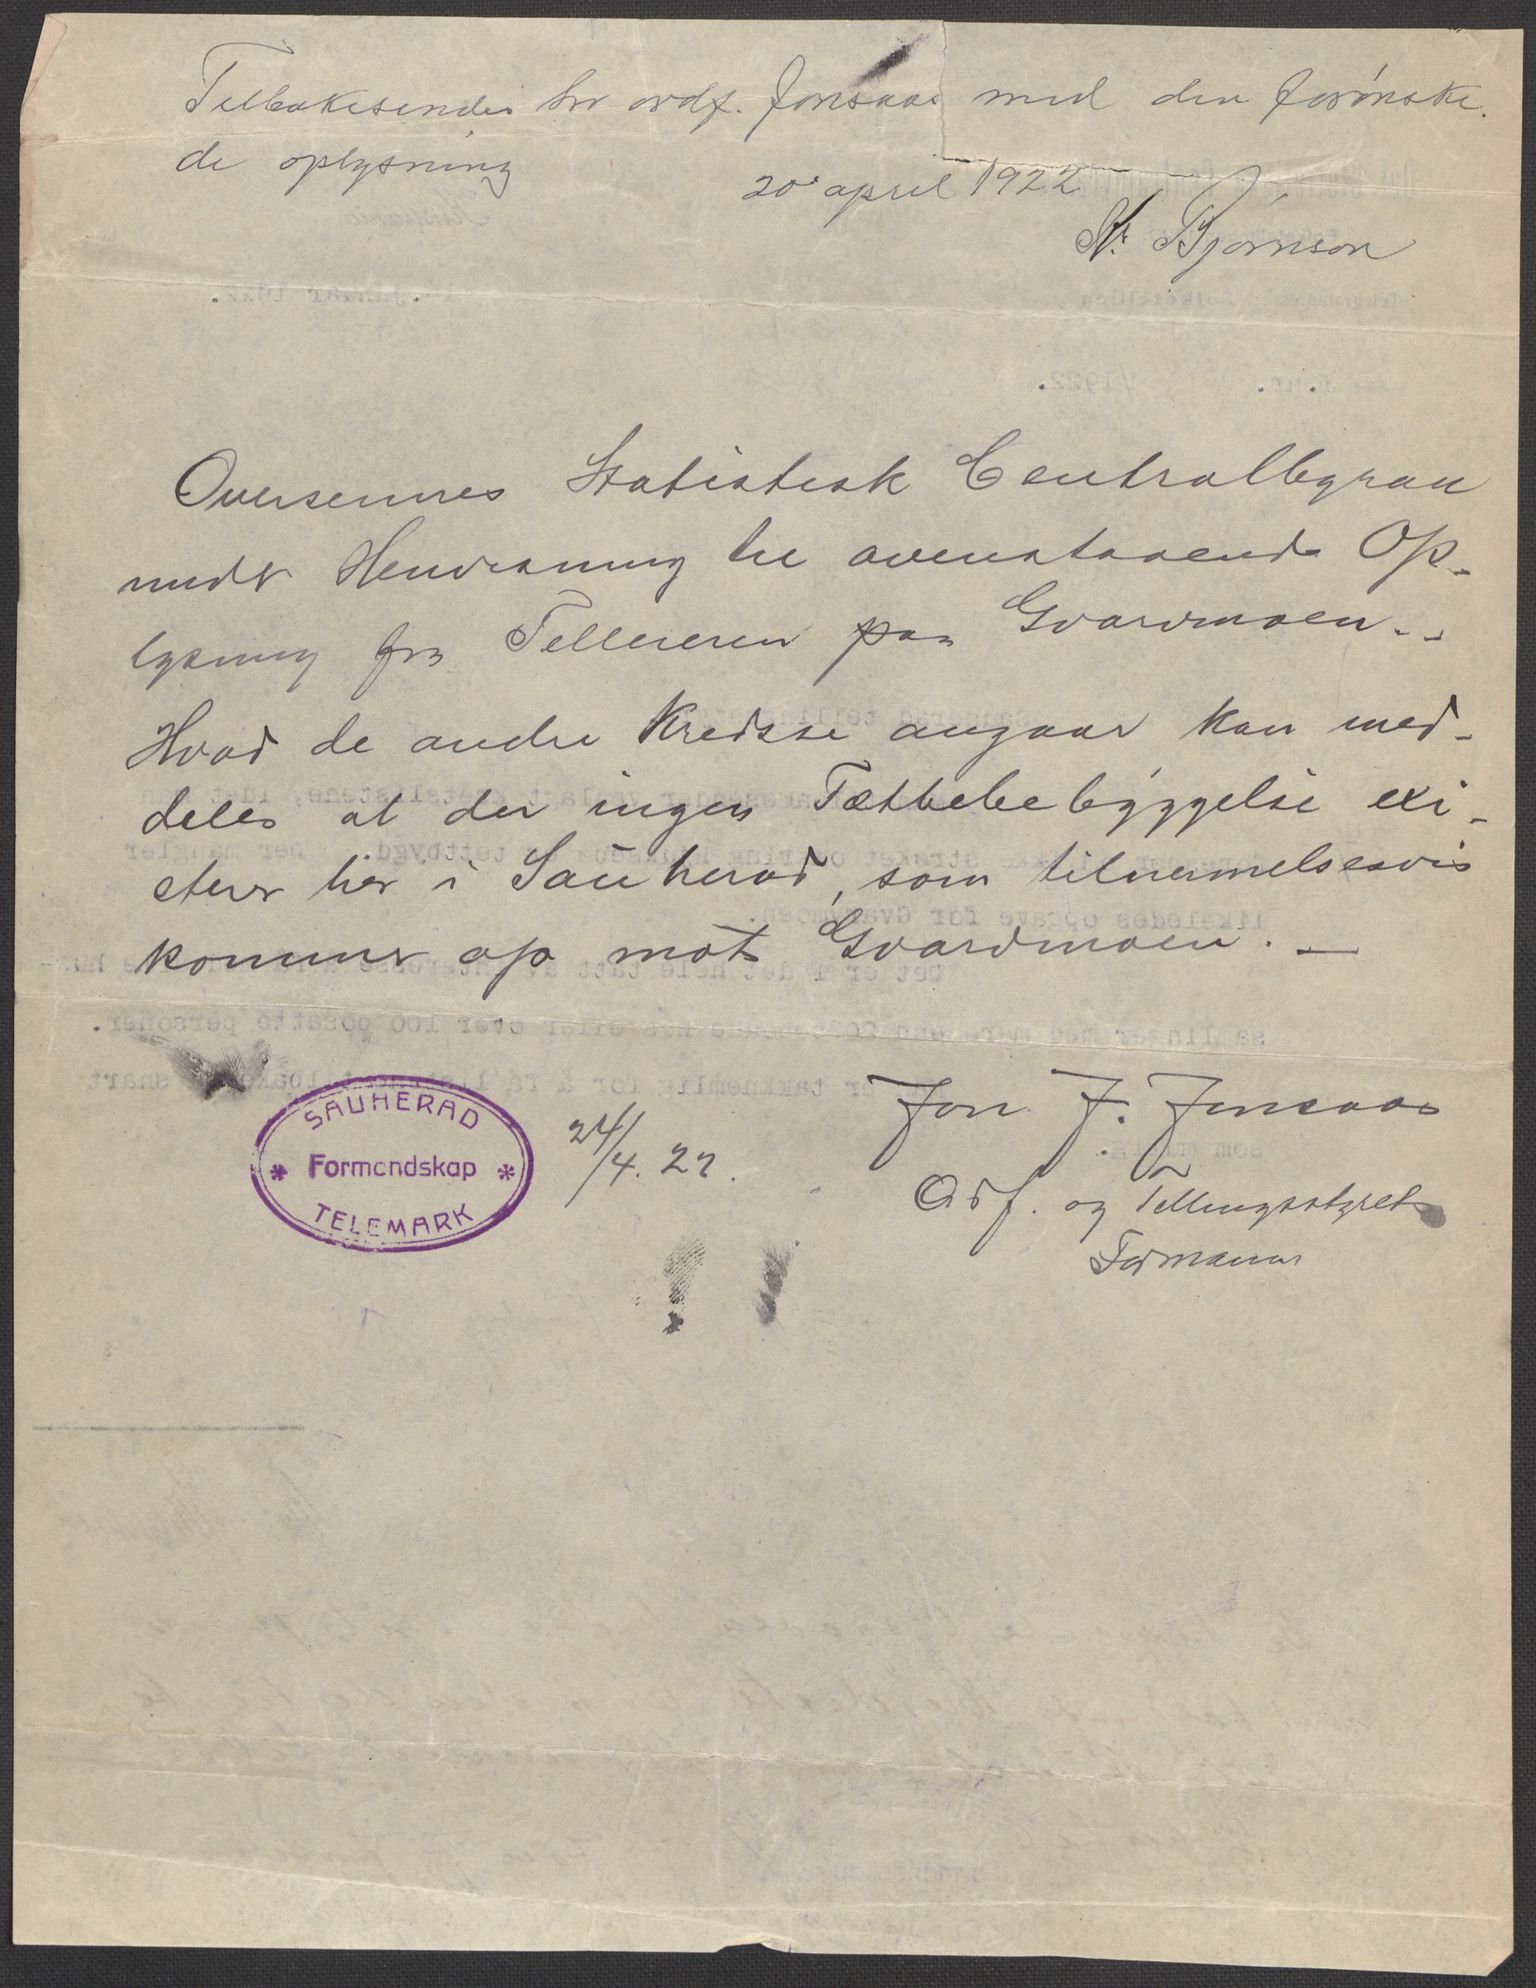 Tilbakesendes hr ordf. Jonsaas med den forønske-
de oplysning
20 april 1922
N. Bjørnson
Oversennes Statistisk Centralbyraa
under Henvisning til ovenstaaende Op-
lysning fra Telleren paa Gvardmoen. -
Hvad de andre Kredsse angaar kan med-
deles at der ingen Tætbebebyggelse exi-
sterer her i Sauherad, som tilnermelsesvis
kommer op mot Gvardmoen. -
SAUHERAD
* Formandskap *
TELEMARK
24/4. 22.
Jon J. Jonsaas
Ordf. og Tellingsstyrets
Formann